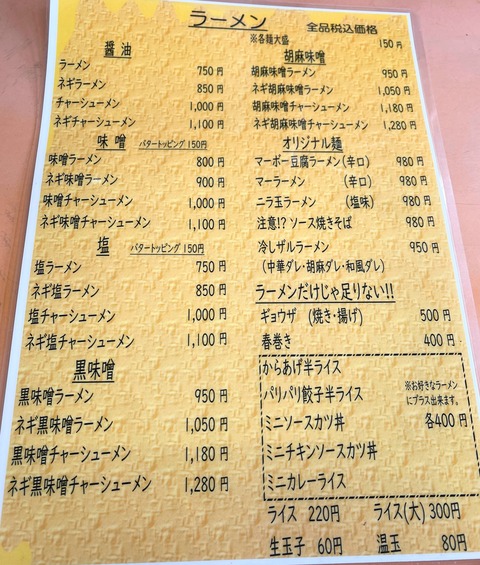 ラーメン 全品税込価格
※各麺大盛 150円
醤油
ラーメン 750円
ネギラーメン 850円
チャーシューメン 1,000円
ネギチャーシューメン 1,100円
味噌 バタートッピング150円
味噌ラーメン 800円
ネギ味噌ラーメン 900円
味噌チャーシューメン 1,000円
ネギ味噌チャーシューメン 1,100円
塩 バタートッピング150円
塩ラーメン 750円
ネギ塩ラーメン 850円
塩チャーシューメン 1,000円
ネギ塩チャーシューメン 1,100円
黒味噌
黒味噌ラーメン 950円
ネギ黒味噌ラーメン 1,050円
黒味噌チャーシューメン 1,180円
ネギ黒味噌チャーシューメン 1,280円
胡麻味噌
胡麻味噌ラーメン 950円
ネギ胡麻味噌ラーメン 1,050円
胡麻味噌チャーシューメン 1,180円
ネギ胡麻味噌チャーシューメン 1,280円
オリジナル麺
マーボー豆腐ラーメン(辛口) 980円
マーラーメン (辛口) 980円
ニラ玉ラーメン (塩味) 980円
注意!? ソース焼きそば 980円
冷しザルラーメン 950円
(中華ダレ・胡麻ダレ・和風ダレ)
ラーメンだけじゃ足りない!!
ギョウザ (焼き・揚げ) 500円
春巻き 400円
からあげ半ライス
パリパリ餃子半ライス
ミニソースカツ丼
ミニチキンソースカツ丼
ミニカレーライス
※お好きなラーメン
にプラス出来ます。
各400円
ライス 220円 ライス(大) 300円
生玉子 60円 温玉 80円